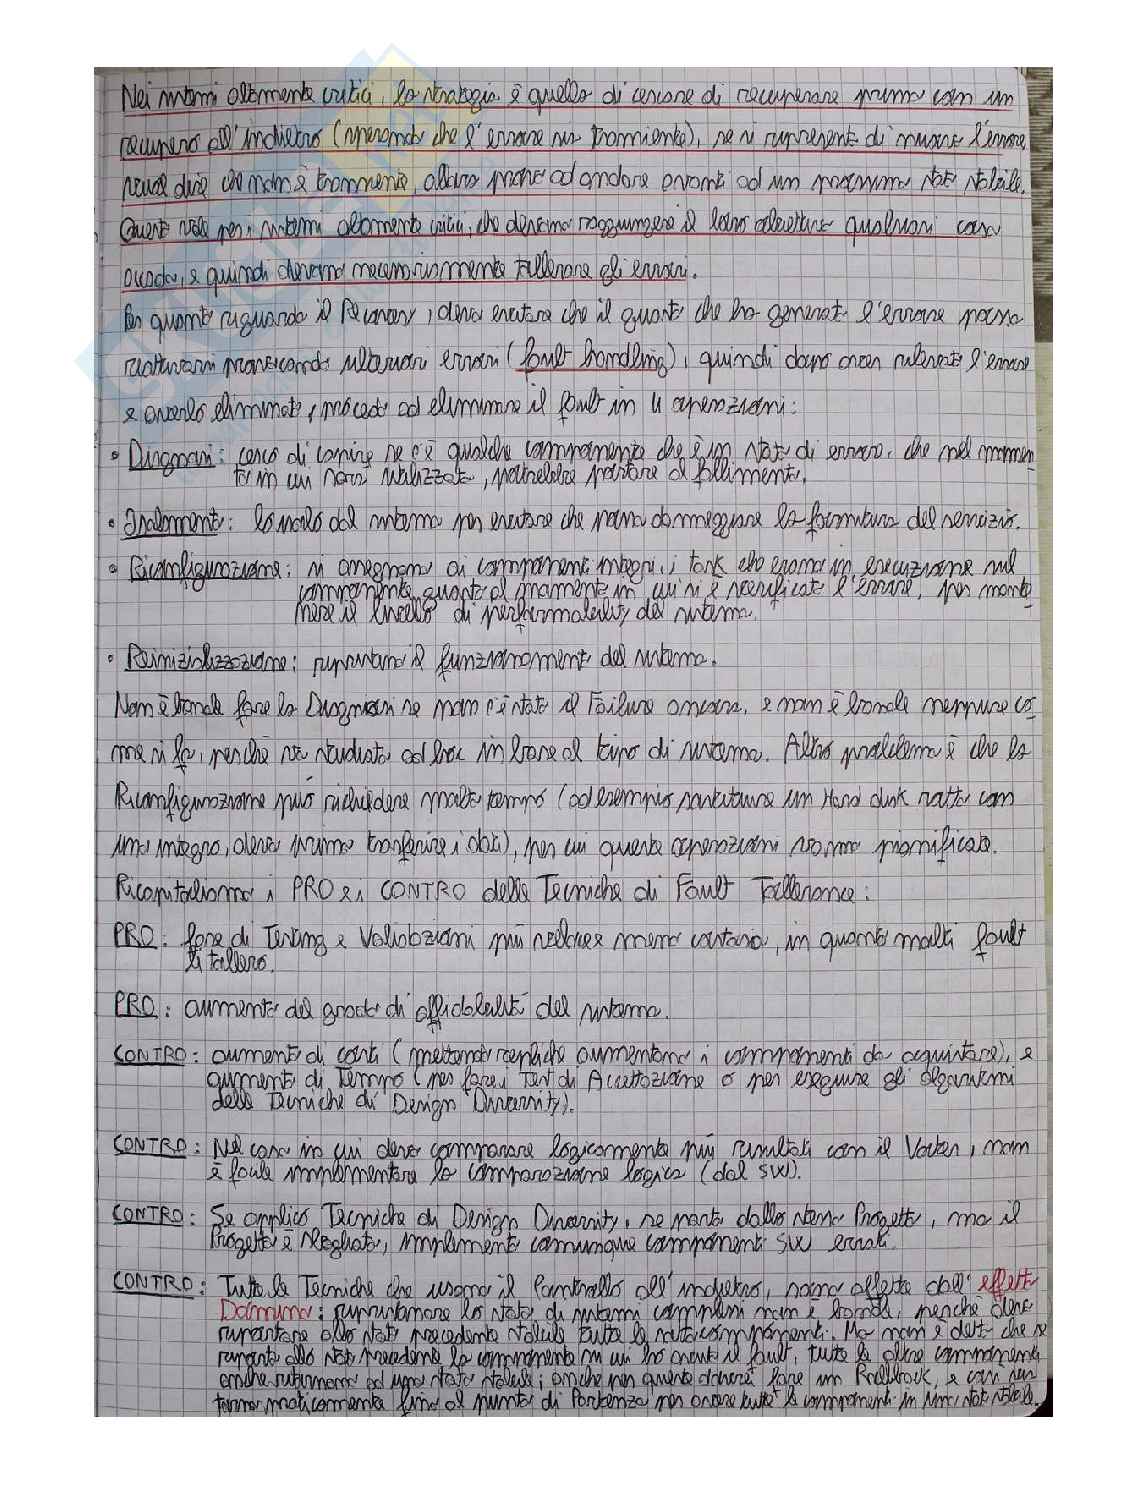 Nei sistemi altamente critici, la strategia è quella di cercare di recuperare prima con un
recupero all'indietro (sperando che l'errore sia transiente), se si ripresenta di nuovo l'errore
vuol dire che non è transiente, allora provo ad andare avanti ad un prossimo stato stabile.
Questo vale per i sistemi altamente critici, che devono raggiungere il loro obiettivo qualsiasi cosa
accada, e quindi devono necessariamente tollerare gli errori.
Per quanto riguarda il Recovery, devo evitare che il guasto che ha generato l'errore possa
riattivarsi provocando ulteriori errori (fault handling), quindi dopo aver rilevato l'errore
e averlo eliminato, procedo ad eliminare il fault in 4 operazioni:
• Diagnosi: cerco di capire se c'è qualche componente che è in stato di errore, che nel momen-
to in cui verrà riutilizzato, potrebbe portare al fallimento.
• Isolamento: lo isolo dal sistema per evitare che possa danneggiare la fornitura del servizio.
• Riconfigurazione: si assegnano ai componenti integri, i task che erano in esecuzione sul
componente guasto al momento in cui si è verificato l'errore, per mante-
nere il livello di performability del sistema.
• Reinizializzazione: ripristino il funzionamento del sistema.
Non è banale fare la Diagnosi se non c'è stato il Failure ancora, e non è banale neppure co-
me si fa, perché va studiato ad hoc in base al tipo di sistema. Altro problema è che la
Riconfigurazione può richiedere molto tempo (ad esempio sostituire un Hard disk rotto con
uno integro, devo prima trasferire i dati), per cui queste operazioni vanno pianificate.
Ricapitoliamo i PRO e i CONTRO delle Tecniche di Fault Tollerance:
PRO: fase di Testing e Validazioni più veloce e meno costosa, in quanto molti fault
li tollero.
PRO: aumento del grado di affidabilità del sistema.
CONTRO: aumento di costi (mettendo repliche aumentano i componenti da acquistare), e
aumento di Tempo (per fare i Test di Accettazione o per eseguire gli algoritmi
delle Tecniche di Design Diversity).
CONTRO: Nel caso in cui devo comparare logicamente più risultati con il Voter, non
è facile implementare la comparazione logica (dal SW).
CONTRO: Se applico Tecniche di Design Diversity, se parto dallo stesso Progetto, ma il
Progetto è sbagliato, implemento comunque componenti SW errati.
CONTRO: Tutte le Tecniche che usano il Controllo all'indietro, sono affette dall'effetto
Domino: ripristinare lo stato di sistemi complessi non è banale, perché devo
riportare allo stato precedente stabile tutte le sottocomponenti. Ma non è detto che se
riporto allo stato precedente la componente in cui ho avuto il fault, tutte le altre componenti
anche ritornano ad uno stato stabile; anche per queste dovrei fare un Rollback, e così via
fino al punto di Partenza per avere tutte le componenti in uno stato stabile.